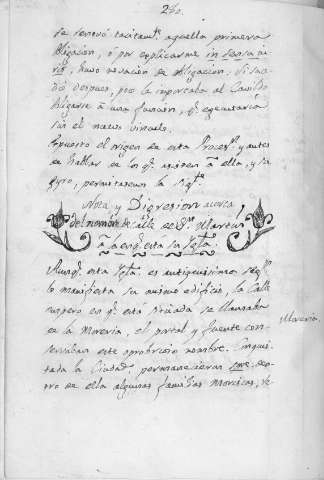 240.
se renovó tacitamte. aquella primera
obligacion, ó por explicarme in sensu ju
ris, huvo novacion de obligacion. Si suce
dió despues, poco le importaba al Cavildo
obligarse á una funcion, qe. egecutaria
sin el nuevo vinculo.
Expuesto el origen de esta Procesn. y antes
de hablar de los qe. asisten á ella, y su
gyro, permitasenos la sigte.
Nota y Digresion acerca
del nombre de Calle de Sn. Marcial
á la en qe. está su Iglª.
Aunqe. esta Iglª. es antiquisima segn.
lo manifiesta su mismo edificio, la Calle
ruspero en qe. está situada se llamaba
de la Moreria, el portal y fuente con-
servaban este oprobrioso nombre. Conquis
tada la Ciudad, permanecieron spre. den-
tro de ella algunas familias Moriscas, se
Moreria.